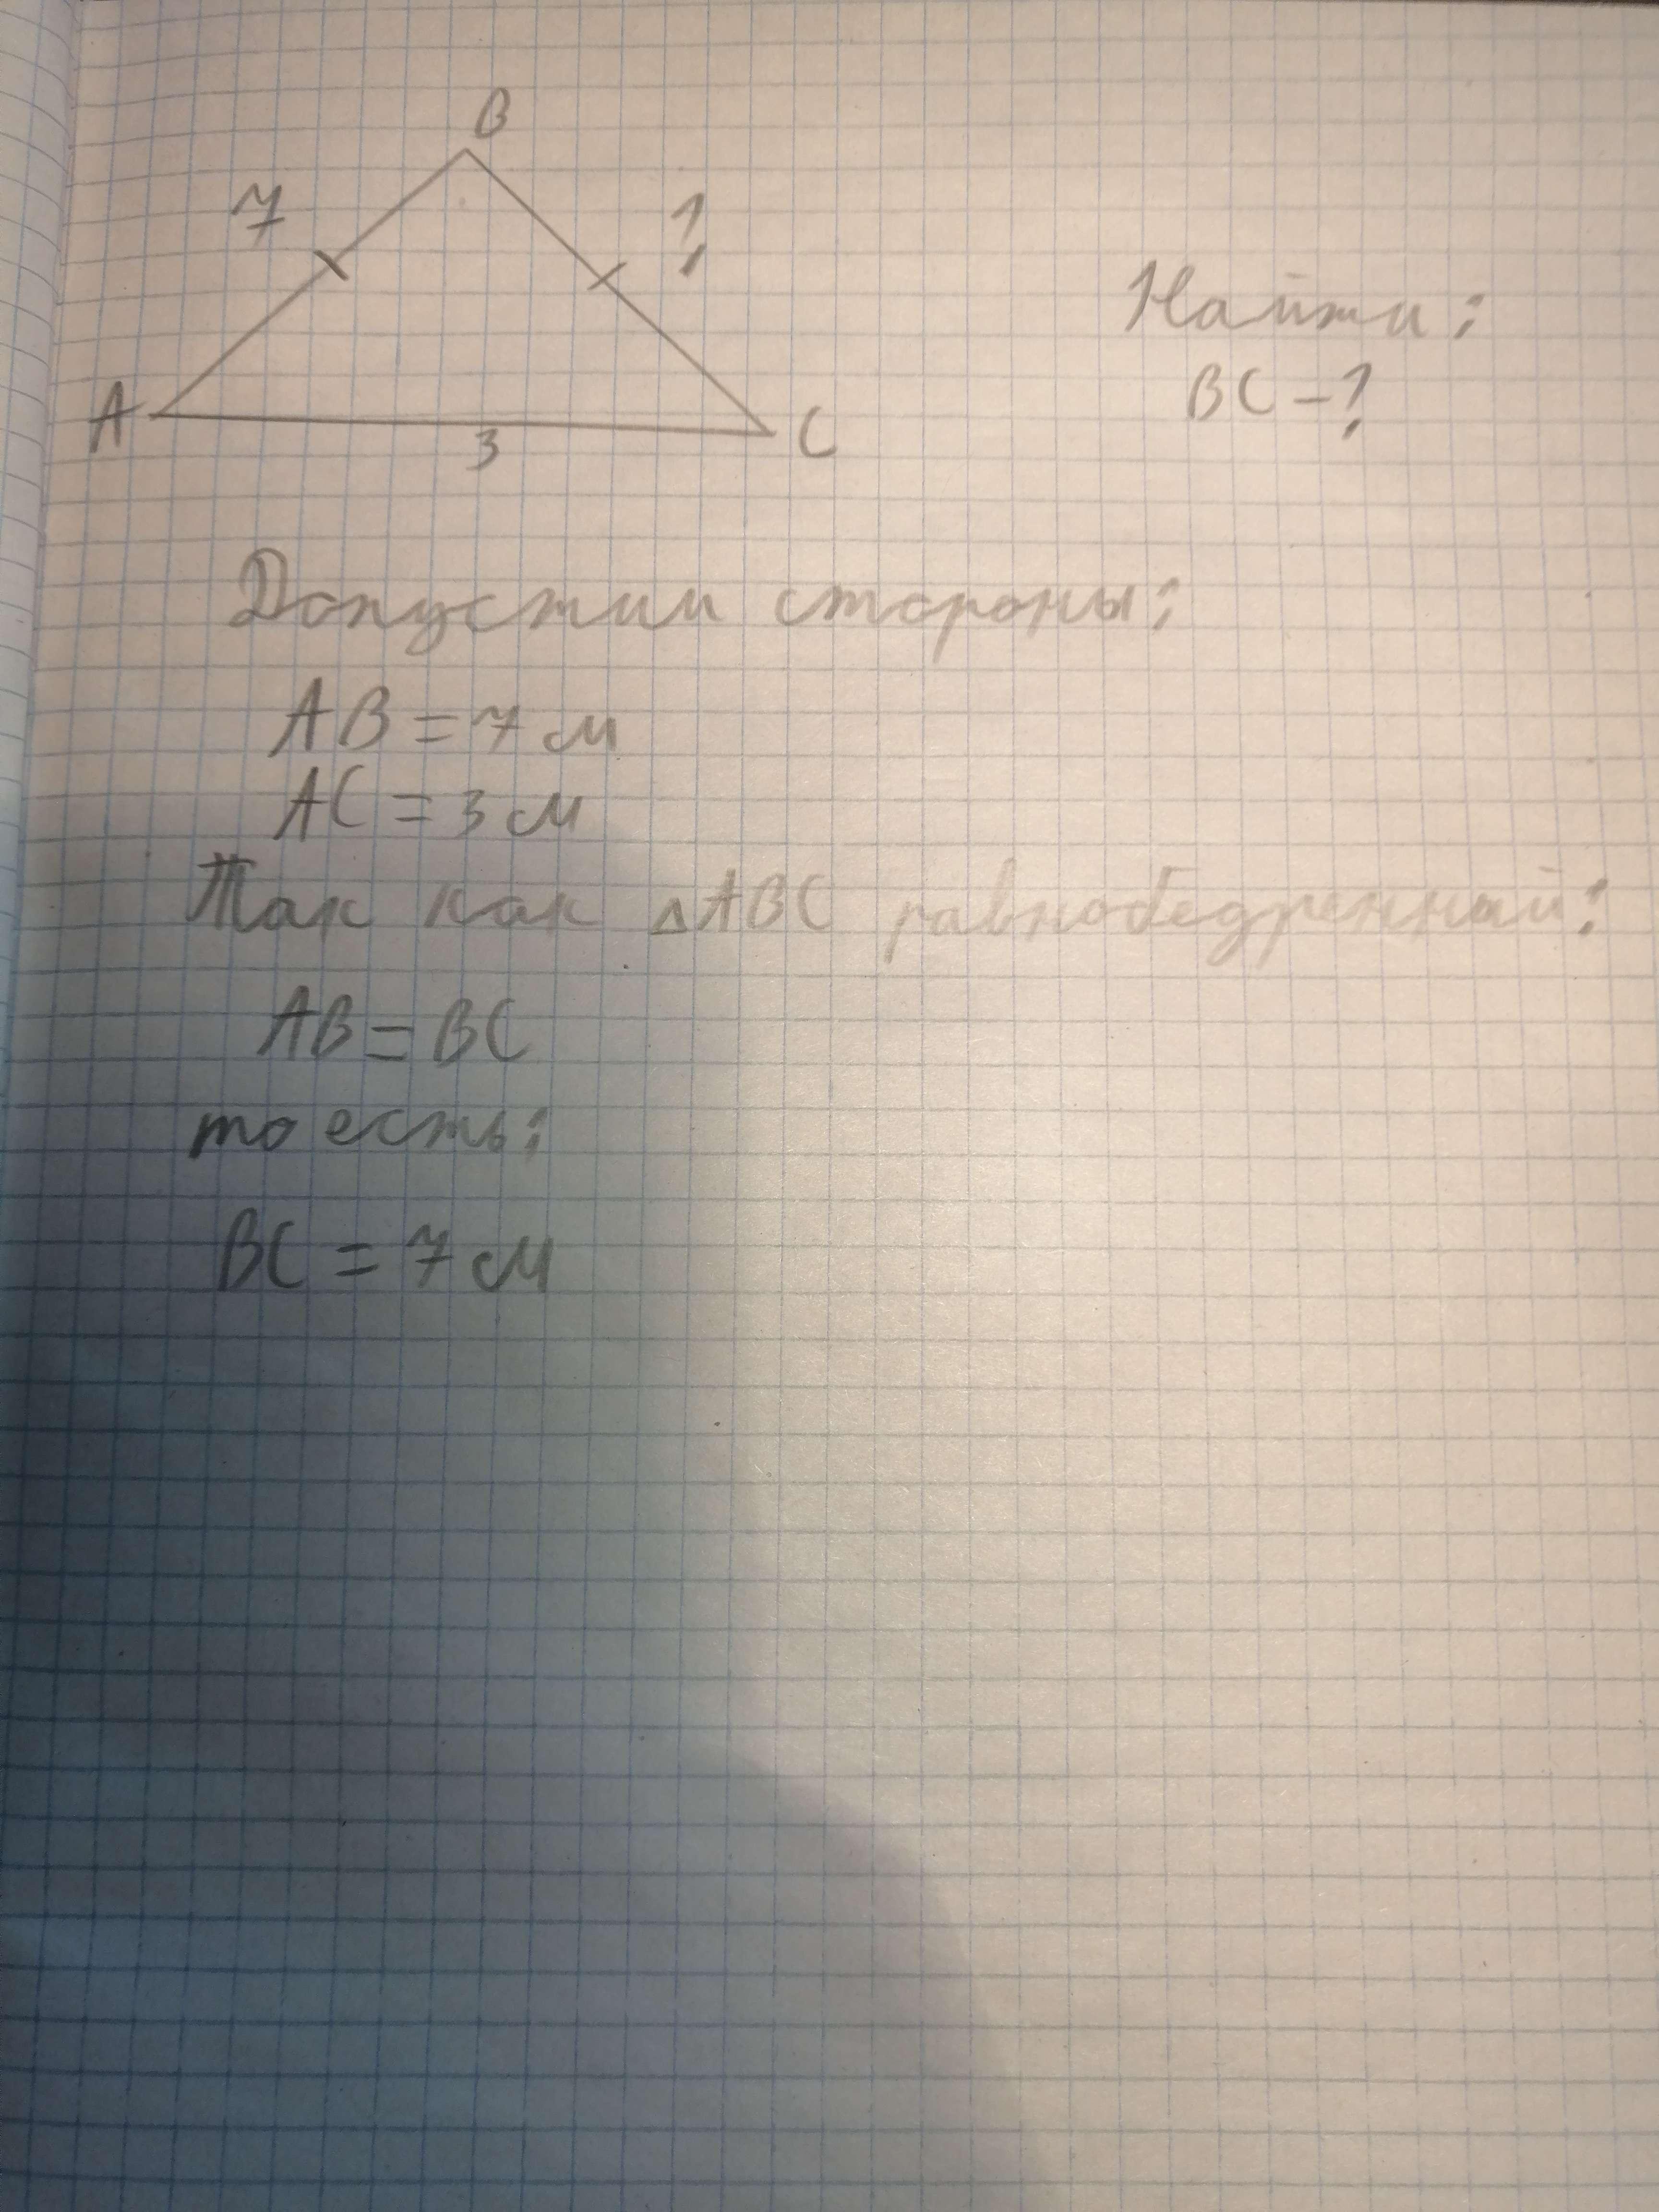 B
7
?
A
3
C
Найти:
BC - ?
Допустим стороны:
AB = 7 м
AC = 3 м
Так как △ABC равнобедренный:
AB = BC
то есть:
BC = 7 м